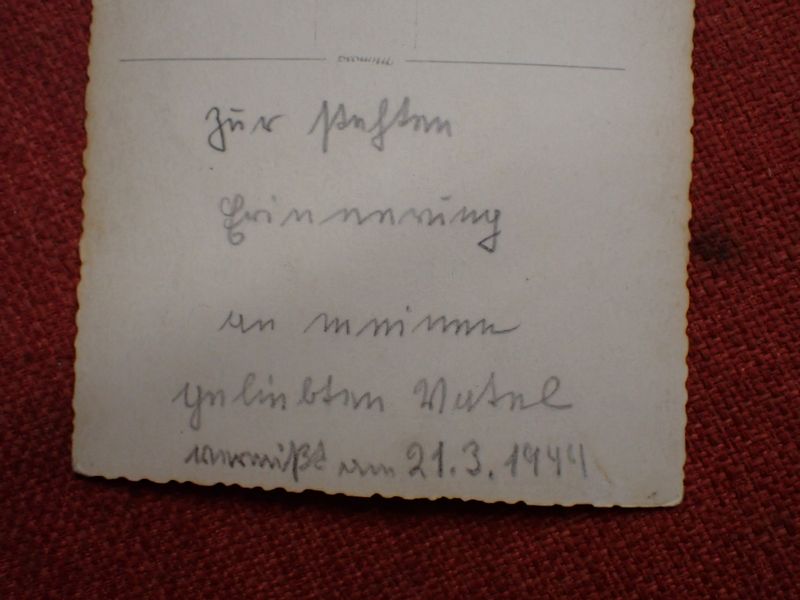 Zur stehten
Erinnerung
an meinen
geliebten Vatel
vermißt am 21.3.1944